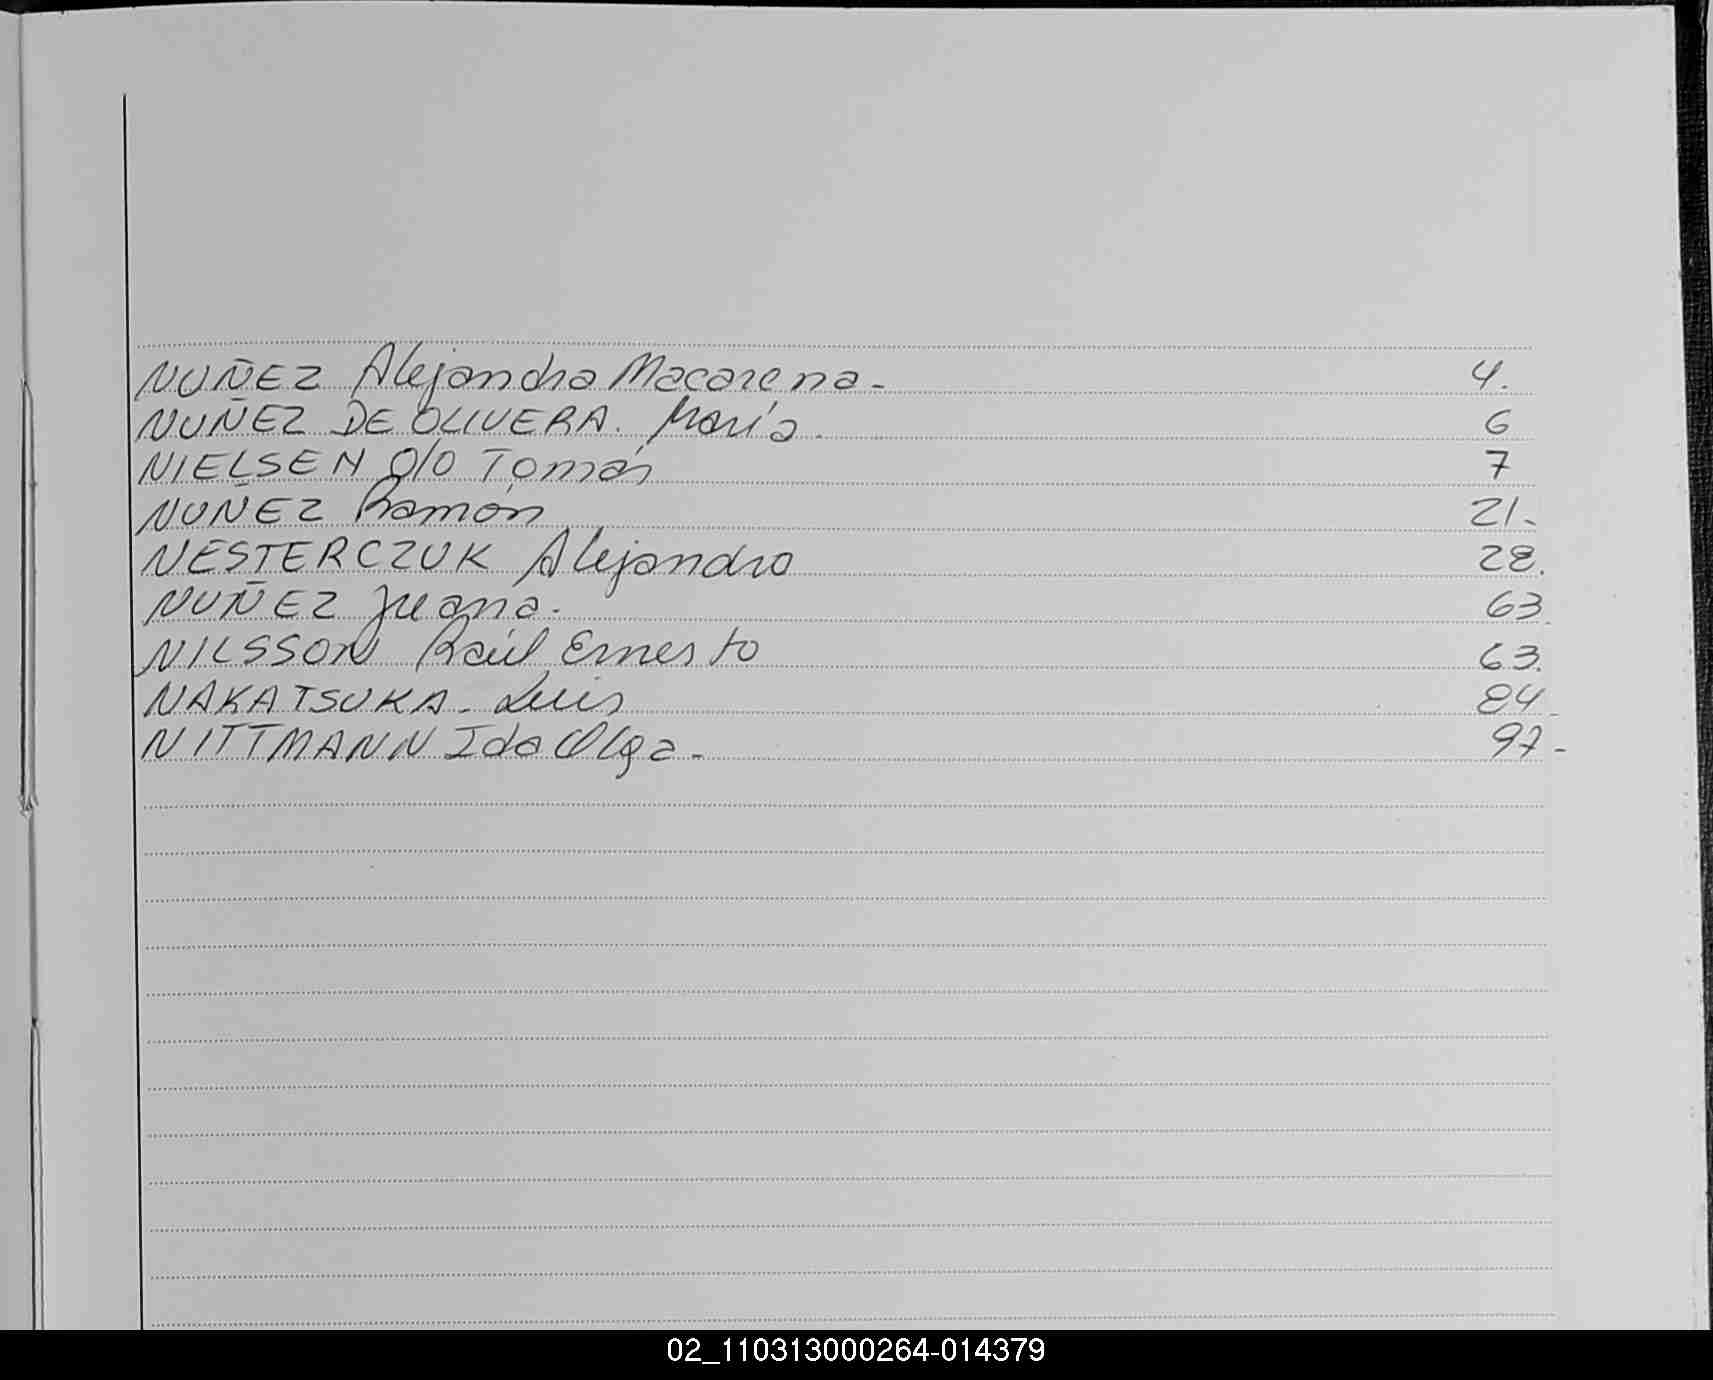 NUÑEZ Alejandra Macarena - 4.
NUÑEZ DE OLIVERA. María. 6
NIELSEN O/O Tomás 7
NUÑEZ Ramón 21.-
NESTERCZUK Alejandro 28.
NUÑEZ Juana. - 63.
NILSSON Raúl Ernesto 63.
NAKATSUKA - Luis 84 -
NITTMANN Ida Olga - 97 -
02_110313000264-014379